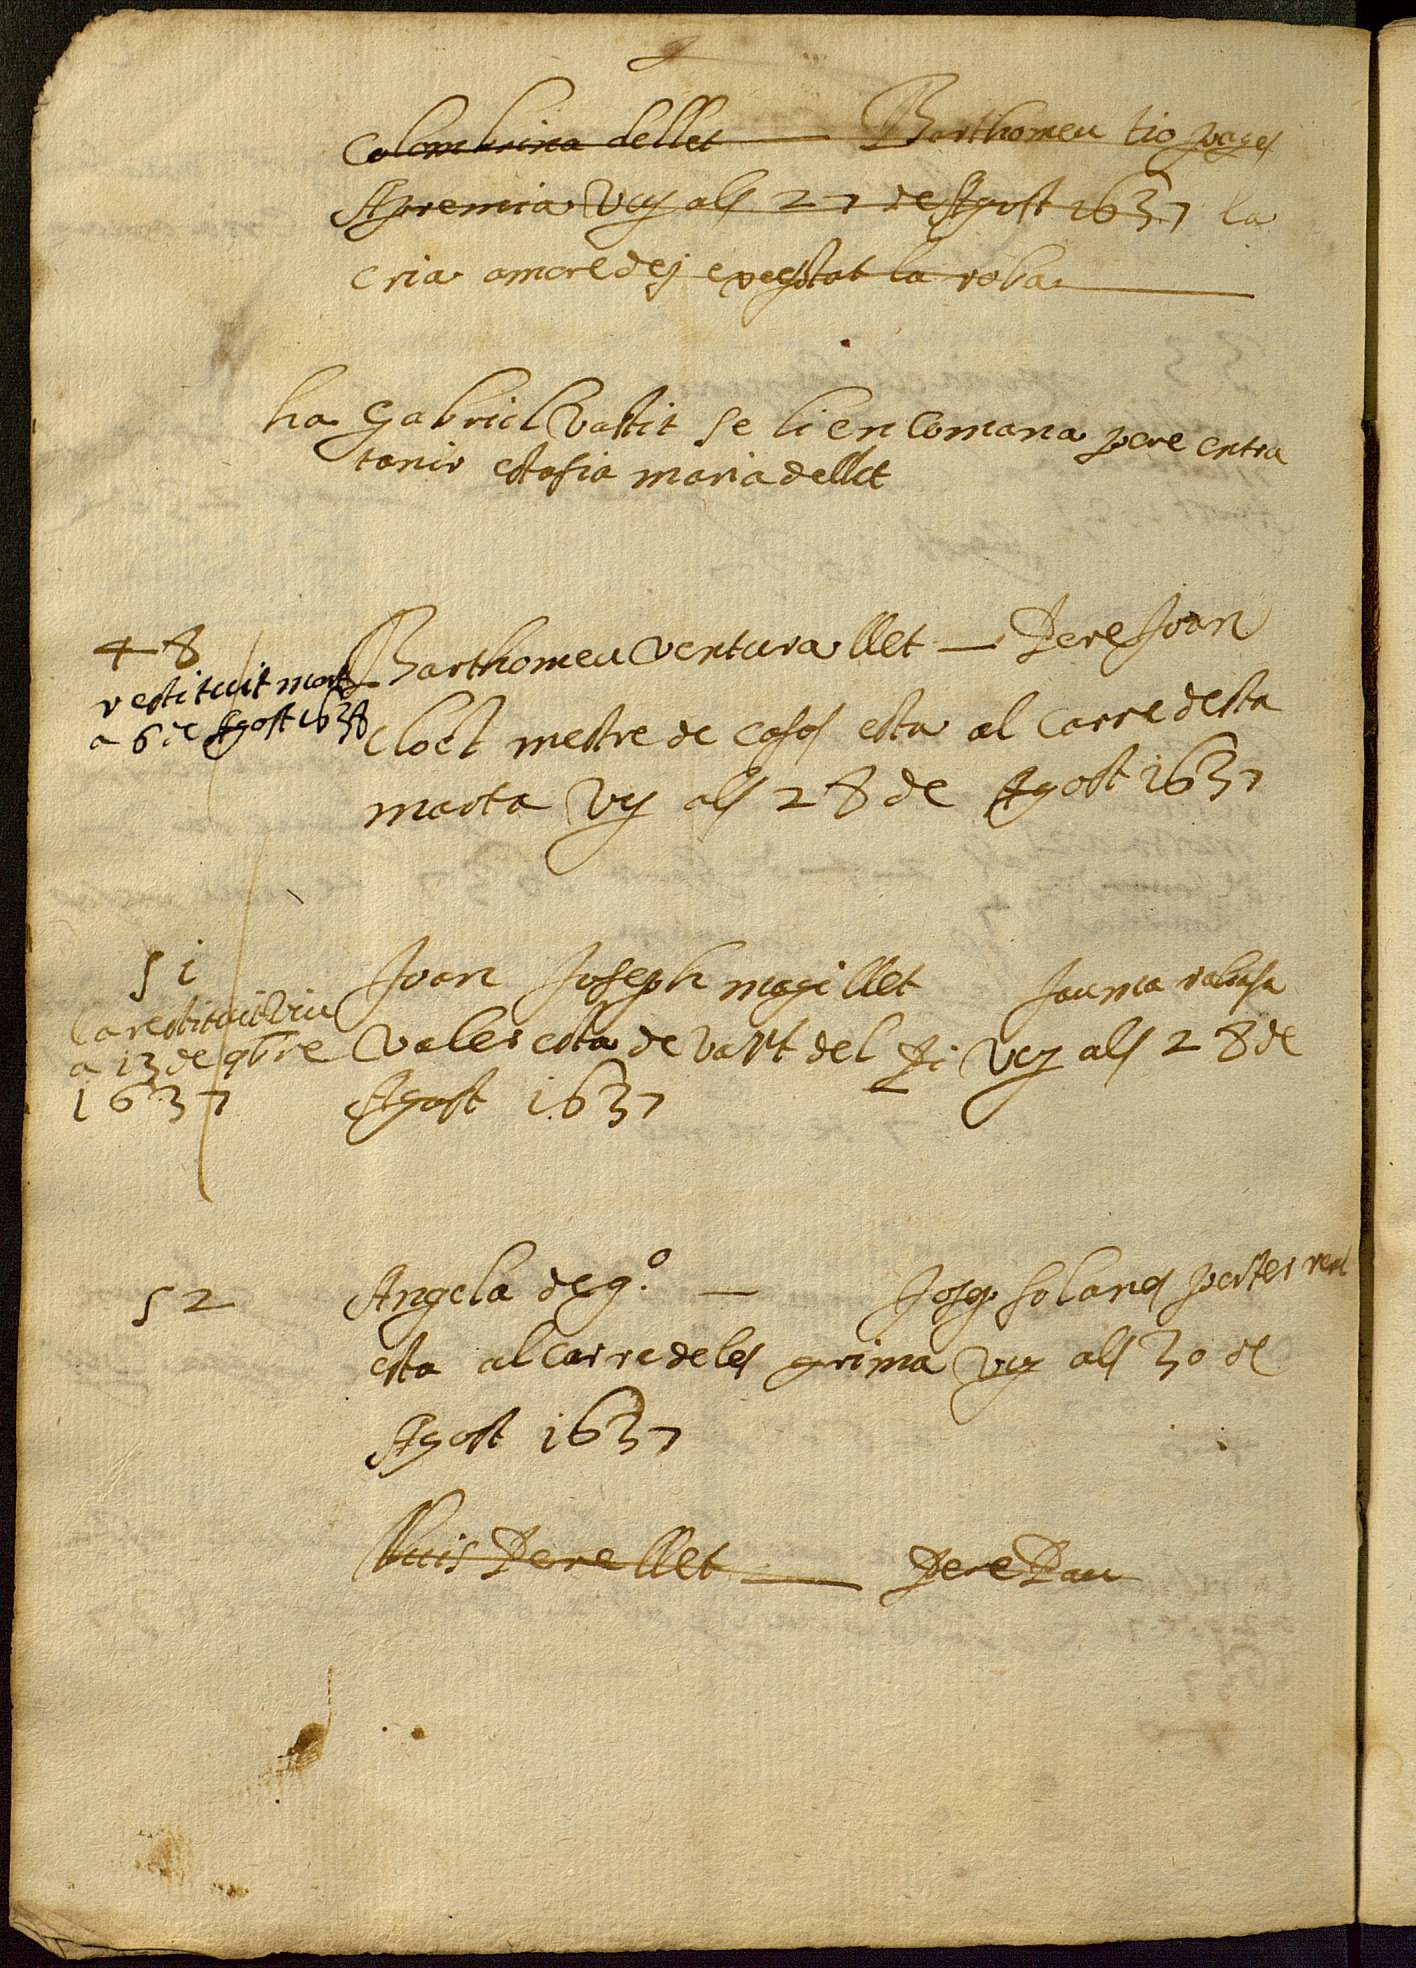 Colombrina dellet — Barthomeu tio pages
Apremia vuy als 27 de Agost 1637 la
cria amoredes e pegstat la roba
ha Gabriel Vastit se li en Comana pere entra
tanir esta fia maria dellet
48
restituit mort
a 6 de Agost 1638
Barthomeu ventura llet — Pere Joan
Cloel mestre de cases esta al Carre desta
marta Vy als 28 de Agost 1637
51
La restituit viu
a 13 de 9bre
1637
Joan Joseph magi llet Jauma rabassa
Valer esta de vart del Pi Vuy als 28 de
Agost 1637
52
Angela de g.º — Josep solanes porter real
esta al carre de les grima vuy als 30 de
Agost 1637
lluis Pere llet — Pere Pau